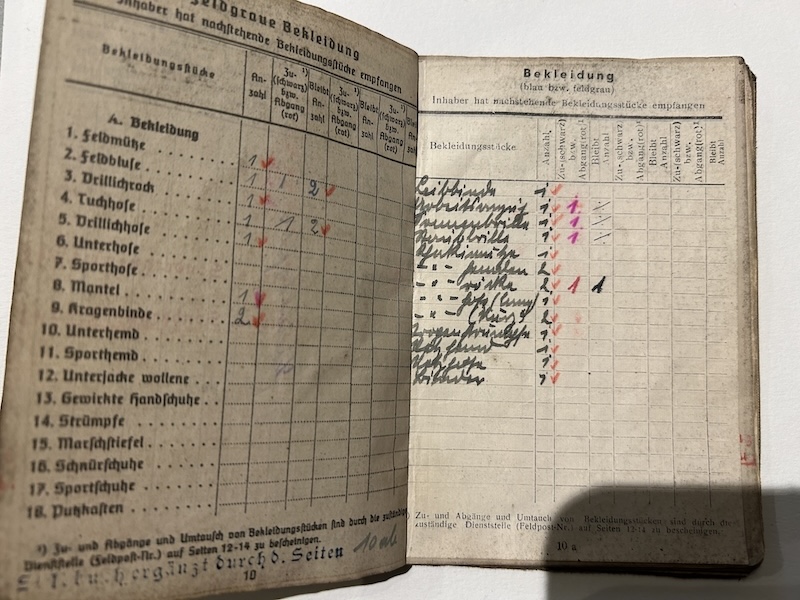 Feldgraue Bekleidung
Inhaber hat nachstehende Bekleidungsstücke empfangen
Bekleidungsstücke
An-
zahl
Zu- ¹)
(schwarz)
bzw.
Abgang
(rot)
Bleibt
An-
zahl
Zu- ¹)
(schwarz)
bzw.
Abgang
(rot)
Bleibt
An-
zahl
Zu- ¹)
(schwarz)
bzw.
Abgang
(rot)
A. Bekleidung
1. Feldmütze 1
2. Feldbluse 1 1 2
3. Drillichrock 1
4. Tuchhose 1 1 2
5. Drillichhose 1
6. Unterhose
7. Sporthose
8. Mantel 1
9. Kragenbinde 2
10. Unterhemd
11. Sporthemd
12. Unterjacke wollene
13. Gewirkte Handschuhe
14. Strümpfe
15. Marschstiefel
16. Schnürschuhe
17. Sportschuhe
18. Putzkasten
¹) Zu- und Abgänge und Umtausch von Bekleidungsstücken sind durch die zuständige
Dienststelle (Feldpost-Nr.) auf Seiten 12-14 zu bescheinigen.
ergänzt durch d. Seiten
10
Bekleidung
(blau bzw. feldgrau)
Inhaber hat nachstehende Bekleidungsstücke empfangen
Bekleidungsstücke
Anzahl
Zu-(schwarz)
bzw.
Abgang(rot)¹
Bleibt
Anzahl
Zu-(schwarz)
bzw.
Abgang(rot)¹
Bleibt
Anzahl
Zu-(schwarz)
bzw.
Abgang(rot)¹
Bleibt
Anzahl
Leibbinde 1
Arbeitsanzug 1 1
1 1
Staubbrille 1 1
Khakimütze 1
" " hemden 2
" " röcke 2 1 1
" " hose (lang) 1
" " (kurz) 2
Tropenstrümpfe
1
1
1
) Zu- und Abgänge und Umtausch von Bekleidungsstücken sind durch die
zuständige Dienststelle (Feldpost-Nr.) auf Seiten 12-14 zu bescheinigen.
10 a